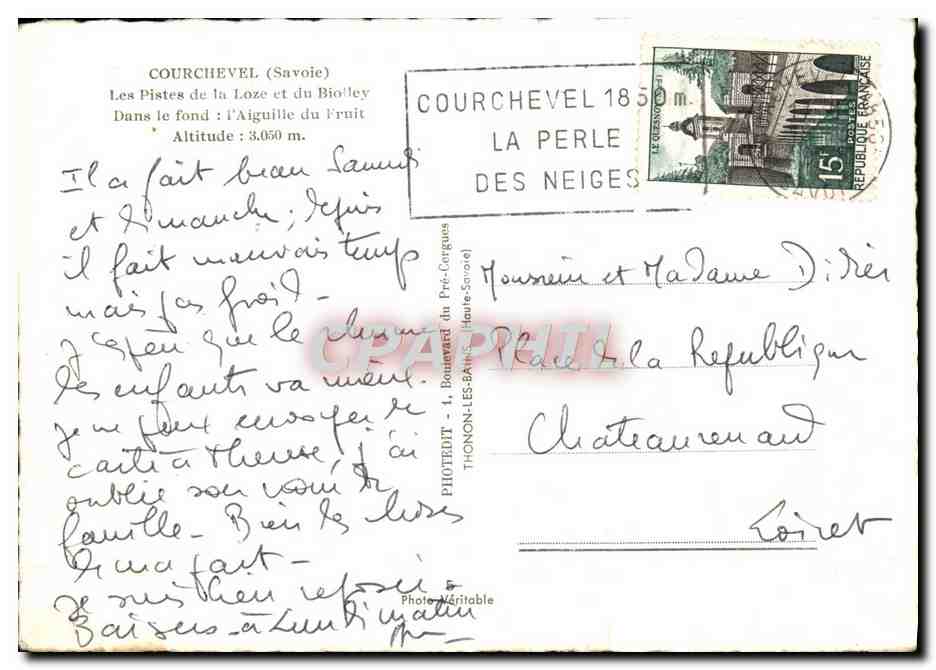 COURCHEVEL (Savoie)
Les Pistes de la Loze et du Biolley
Dans le fond : l'Aiguille du Fruit
Altitude : 3.050 m.
Il a fait beau Samedi
et dimanche, depuis
il fait mauvais temps
mais pas froid -
J'espère que le rhume
des enfants va mieux.
Je ne peux envoyer de
carte à Therese, j'ai
oublié son nom de
famille - Bien des choses
de ma part -
Je suis bien reposée -
Baisers - à Lundi matin
COURCHEVEL 1850 m.
LA PERLE
DES NEIGES
LE QUESNOY
15F
POSTES
REPUBLIQUE FRANÇAISE
PHOTEDIT - 1, Boulevard du Pré-Cergues
THONON-LES-BAINS (Haute-Savoie)
CPAPHIL
Monsieur et Madame Didier
Place de la République
Chateaurenard
Loiret
Photo Véritable